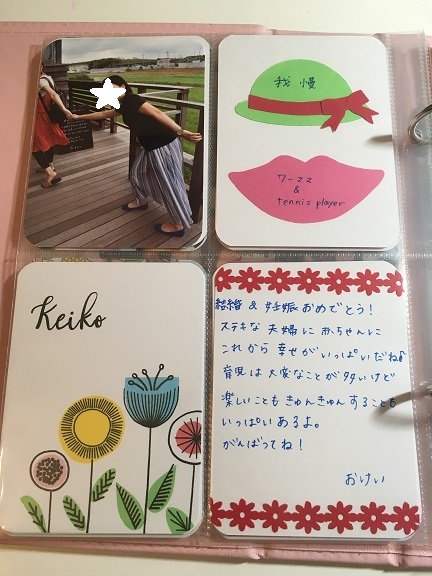 我慢
ワーママ
&
tennis player
Keiko
結婚 & 妊娠 おめでとう!
ステキな 夫婦に 赤ちゃんに
これから 幸せが いっぱいだね♪
育児は 大変なことが 多いけど
楽しいことも きゅんきゅん することも
いっぱい あるよ。
がんばってね!
おけい